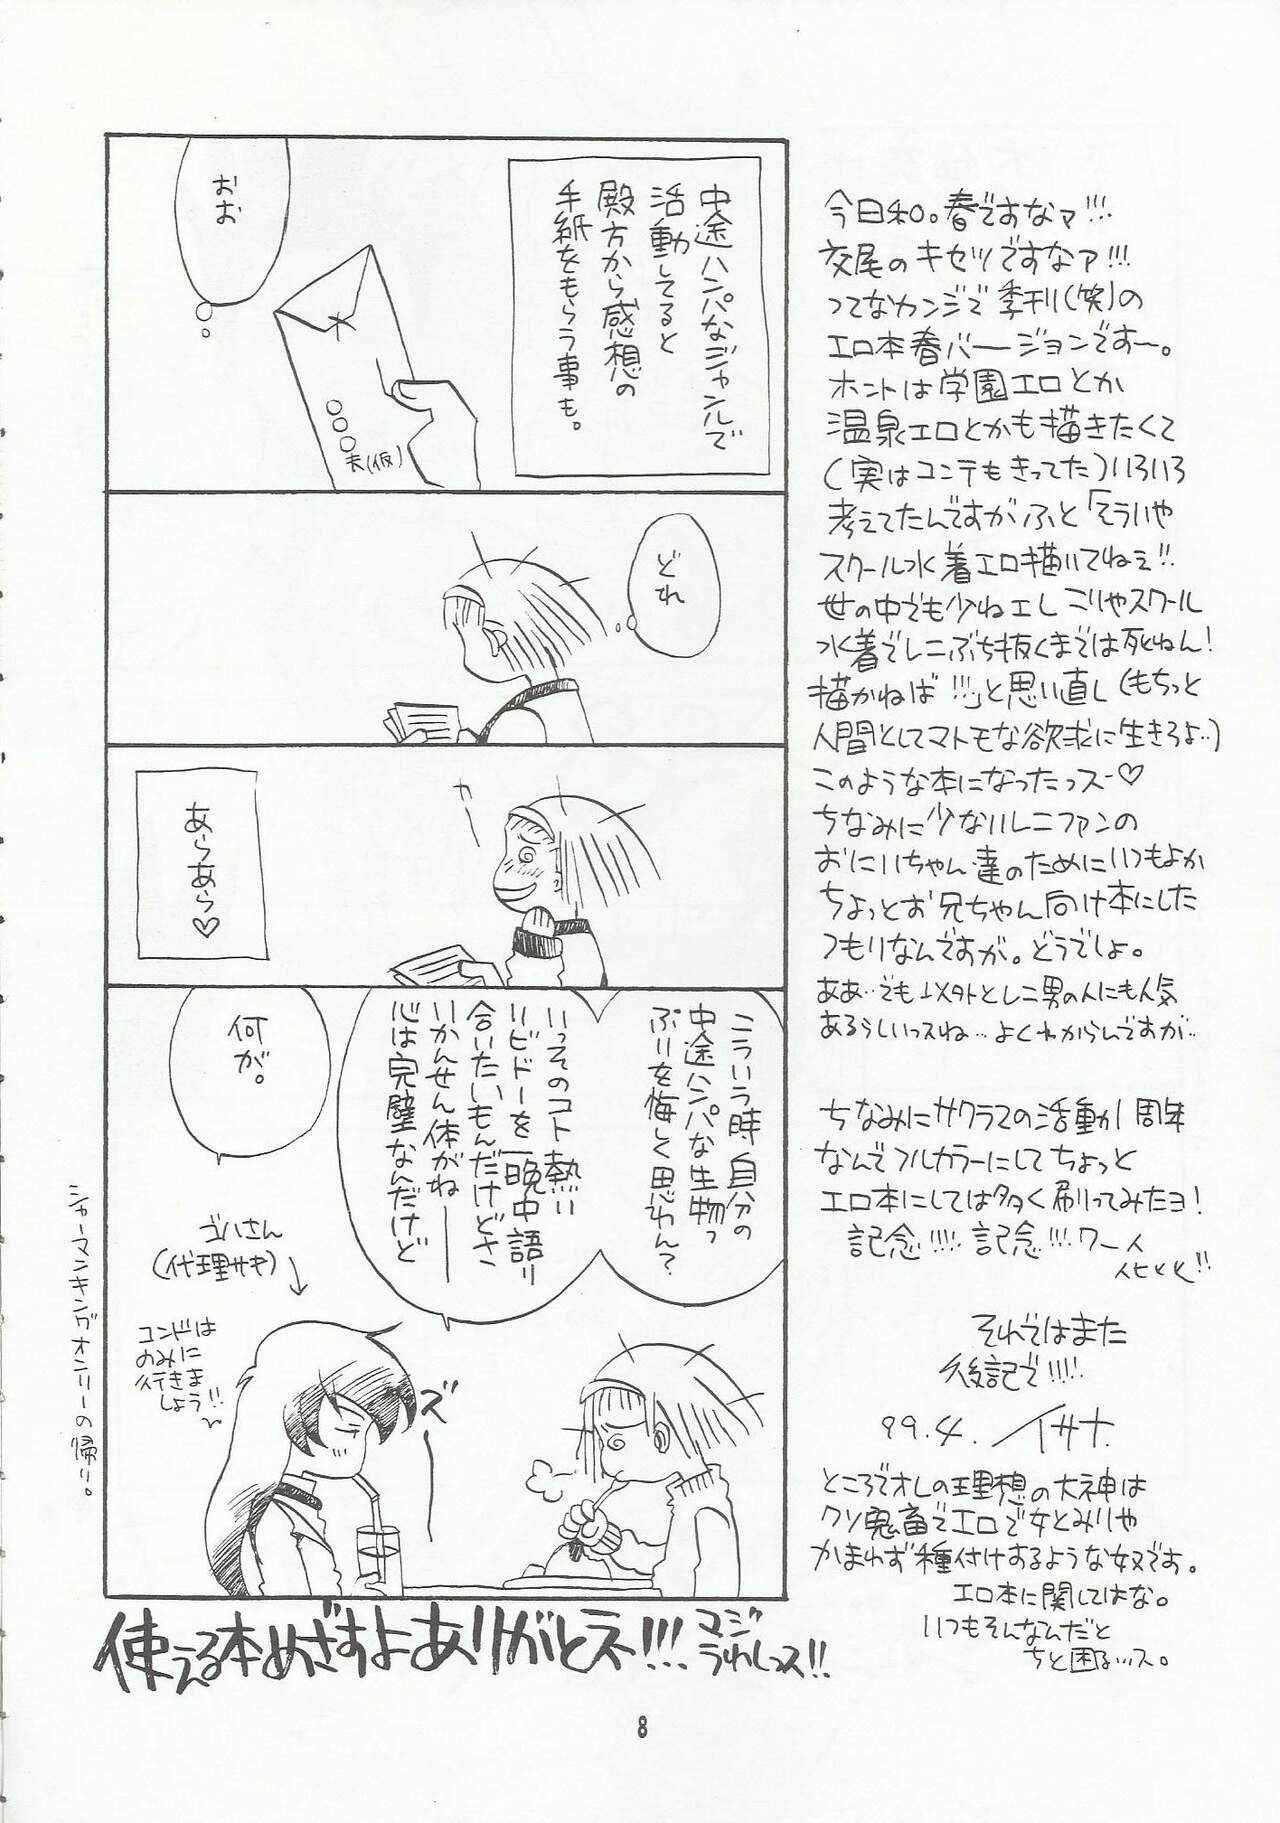 中途ハンパなジャンルで
活動してると
殿方から感想の
手紙をもらう事も。
おお
○○○夫(仮)
どれ
カー
あらあら♡
こういう時自分の
中途ハンパな生物っ
ぷりを悔しく思わん?
いっそのコト熱い
リビドーを一晩中語り
合いたいもんだけどさ
いかんせん体がねー
心は完璧なんだけど
何が。
ゴハさん
(代理サキ)
コンドは
のみに
行きま
しょう!!
ズー
シャーマンキングオンリーの帰り。
使える本めざすよありがとネ!!!
マジ
うれしっス!!
今日和。春ですなァ!!!
交尾のキセツですなァ!!!
ってなカンジで季刊(笑)の
エロ本春バージョンですー。
ホントは学園エロとか
温泉エロとかも描きたくて
(実はコンテもきってた)いろいろ
考えてたんですがふと「そういや
スクール水着エロ描いてねぇ!!
世の中でも少ねェし こりゃスクール
水着でレニぶち抜くまでは死ねん!
描かねば!!!」と思い直し(もちっと
人間としてマトモな欲求に生きろよ‥)
このような本になったっスー♡
ちなみに少ないレニファンの
おにいちゃん達のためにいつもよか
ちょっとお兄ちゃん向け本にした
つもりなんですが。どうでしょ。
ああ‥でも以外とレニ男の人にも人気
あるらしいっスね…よくわからんですが‥
ちなみにサクラでの活動が1周年
なんでフルカラーにしてちょっと
エロ本にしては多く刷ってみたヨ!
記念!!!! 記念!!!ワー人
人ヒヒヒ!!
それではまた
後記で!!!!
99.4. イサナ
ところでオレの理想の大神は
クソ鬼畜でエロで女とみりゃ
かまわず種付けするような奴です。
エロ本に関してはな。
いつもそんなんだと
ちと困るッス。
8